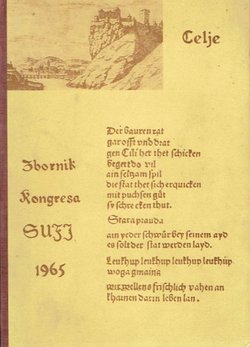 Celje
Zbornik
Kongresa
SUFJ
1965
Der bauren rat
gar offt vnd drat
gen Cili her thet schicken
begert do vil
ain selzam spil
die stat thet sich erquicken
mit puchsen gůt
sy schrecken thut.
Stara prauda
ain yeder schwůr bey seinem ayd
es solt der stat werden layd.
Leukhup leukhup leukhup leukhup
woga gmaina
wir wellens frischlich vahen an
khainen darin leben lan.